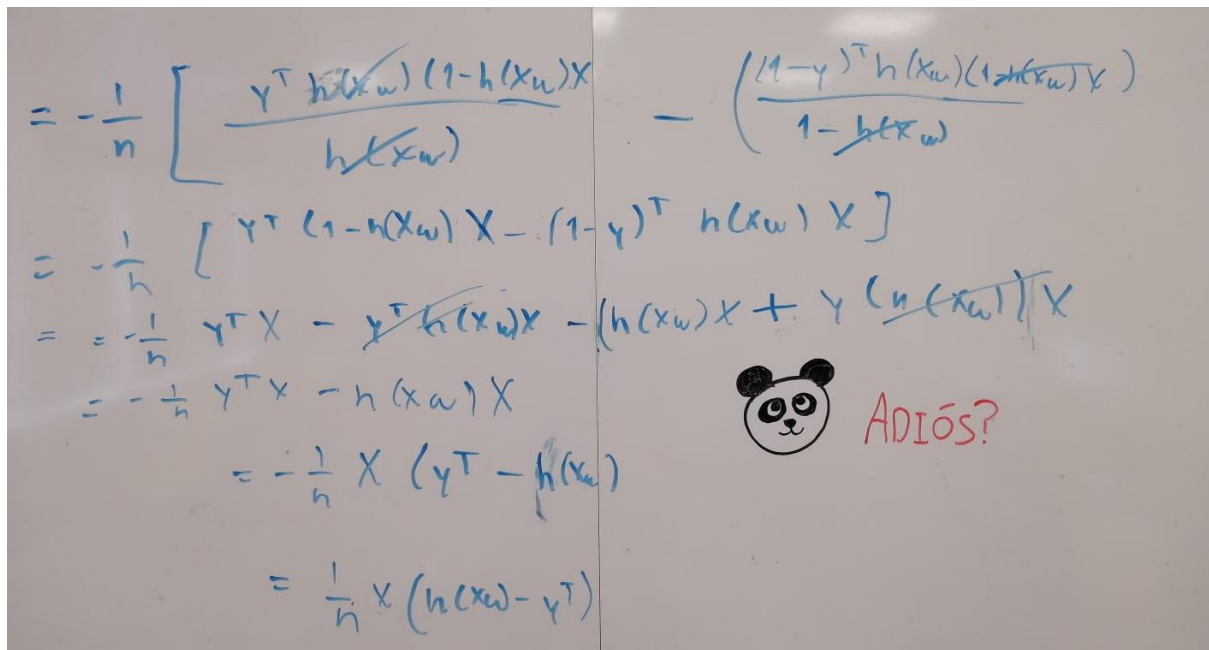 = - 1/n [ yᵀ h(Xw) (1-h(Xw)X / h(Xw) - ( (1-y)ᵀ h(Xw)(1-h(Xw) X ) / 1 - h(Xw)
= - 1/n [ yᵀ (1-h(Xw) X - (1-y)ᵀ h(Xw) X ]
= = - 1/n yᵀ X - yᵀ h(Xw)X - (h(Xw) X + y (h(Xw)) X
= - 1/n yᵀ X - h(Xw) X
ADIÓS?
= - 1/n X (yᵀ - h(Xw)
= 1/n X (h(Xw) - yᵀ)